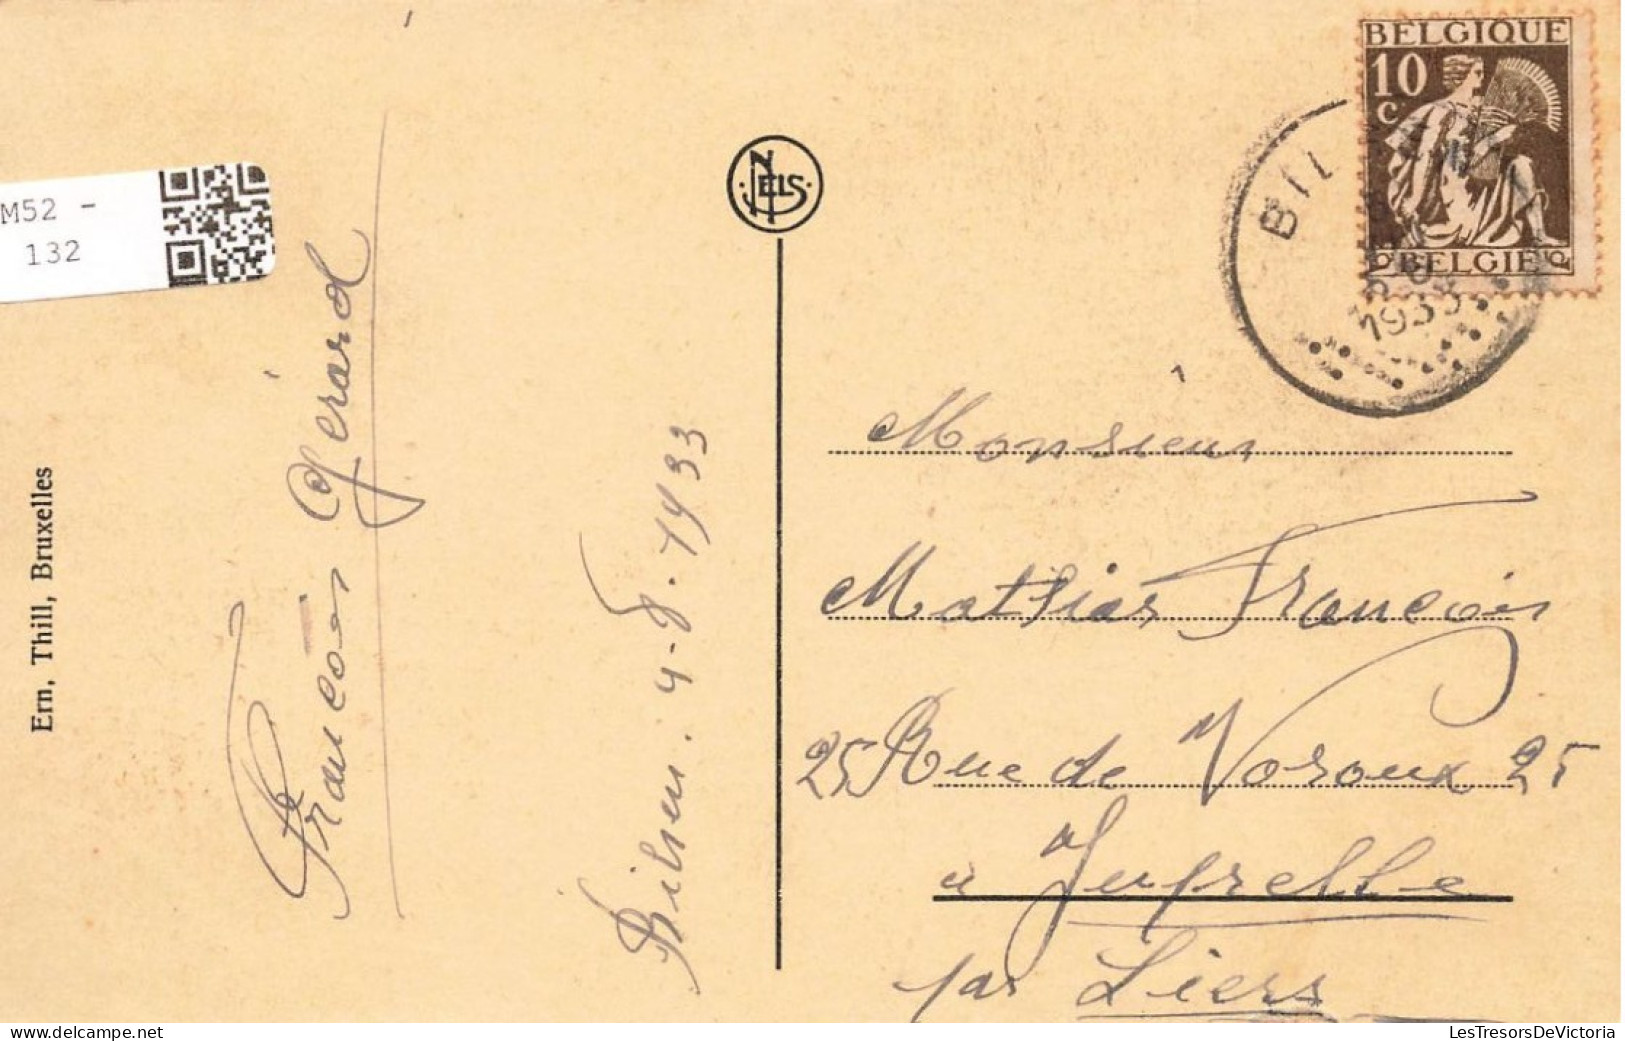 M52 -
132
Ern. Thill, Bruxelles
François Gérard
Bilsen. 4-8-1933
NELS
BELGIQUE
10
c.
BELGIE
BIL
1933
Monsieur
Mathias François
25 Rue de Voroux 25
à Juprelle
par Liers
LesTresorsDeVictoria